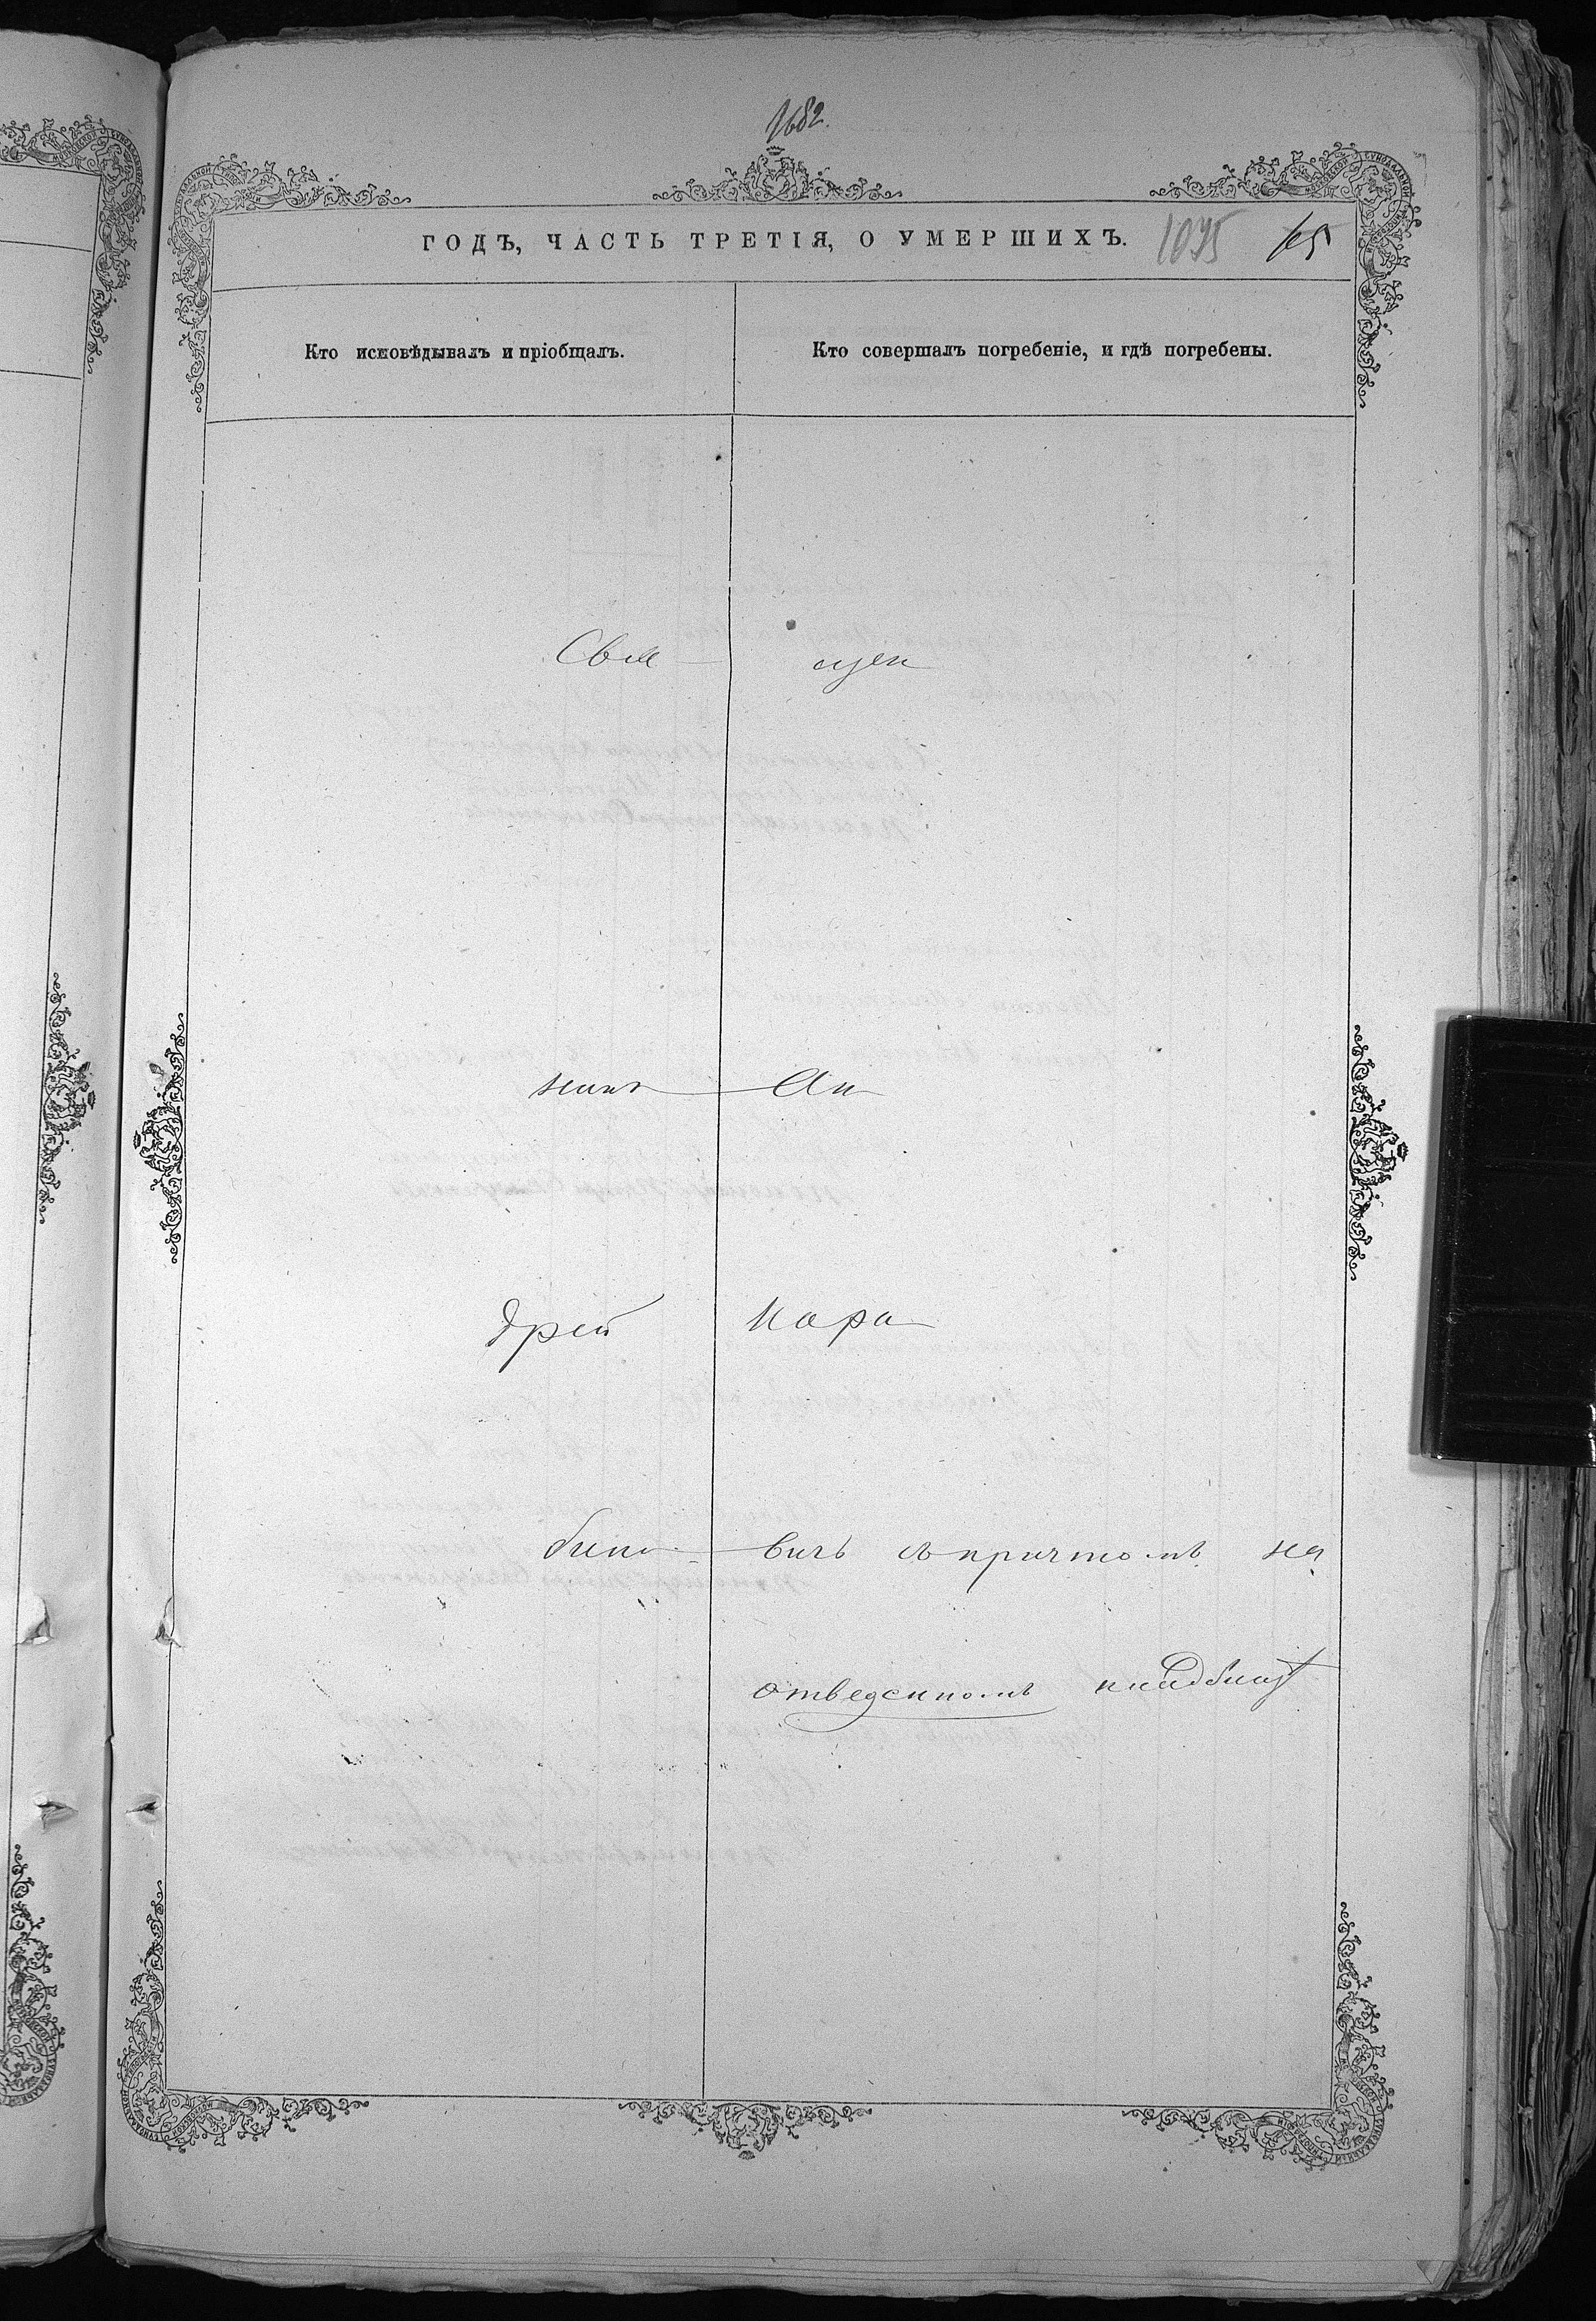 1682.
ГОДЪ, ЧАСТЬ ТРЕТІЯ, О УМЕРШИХЪ. 1095 65
Кто исповѣдывалъ и пріобщалъ. Кто совершалъ погребеніе, и гдѣ погребены.
Свя щен
никъ Ан
дрей Кара
бино вичъ съ причтомъ на
отведенномъ кладбищѣ